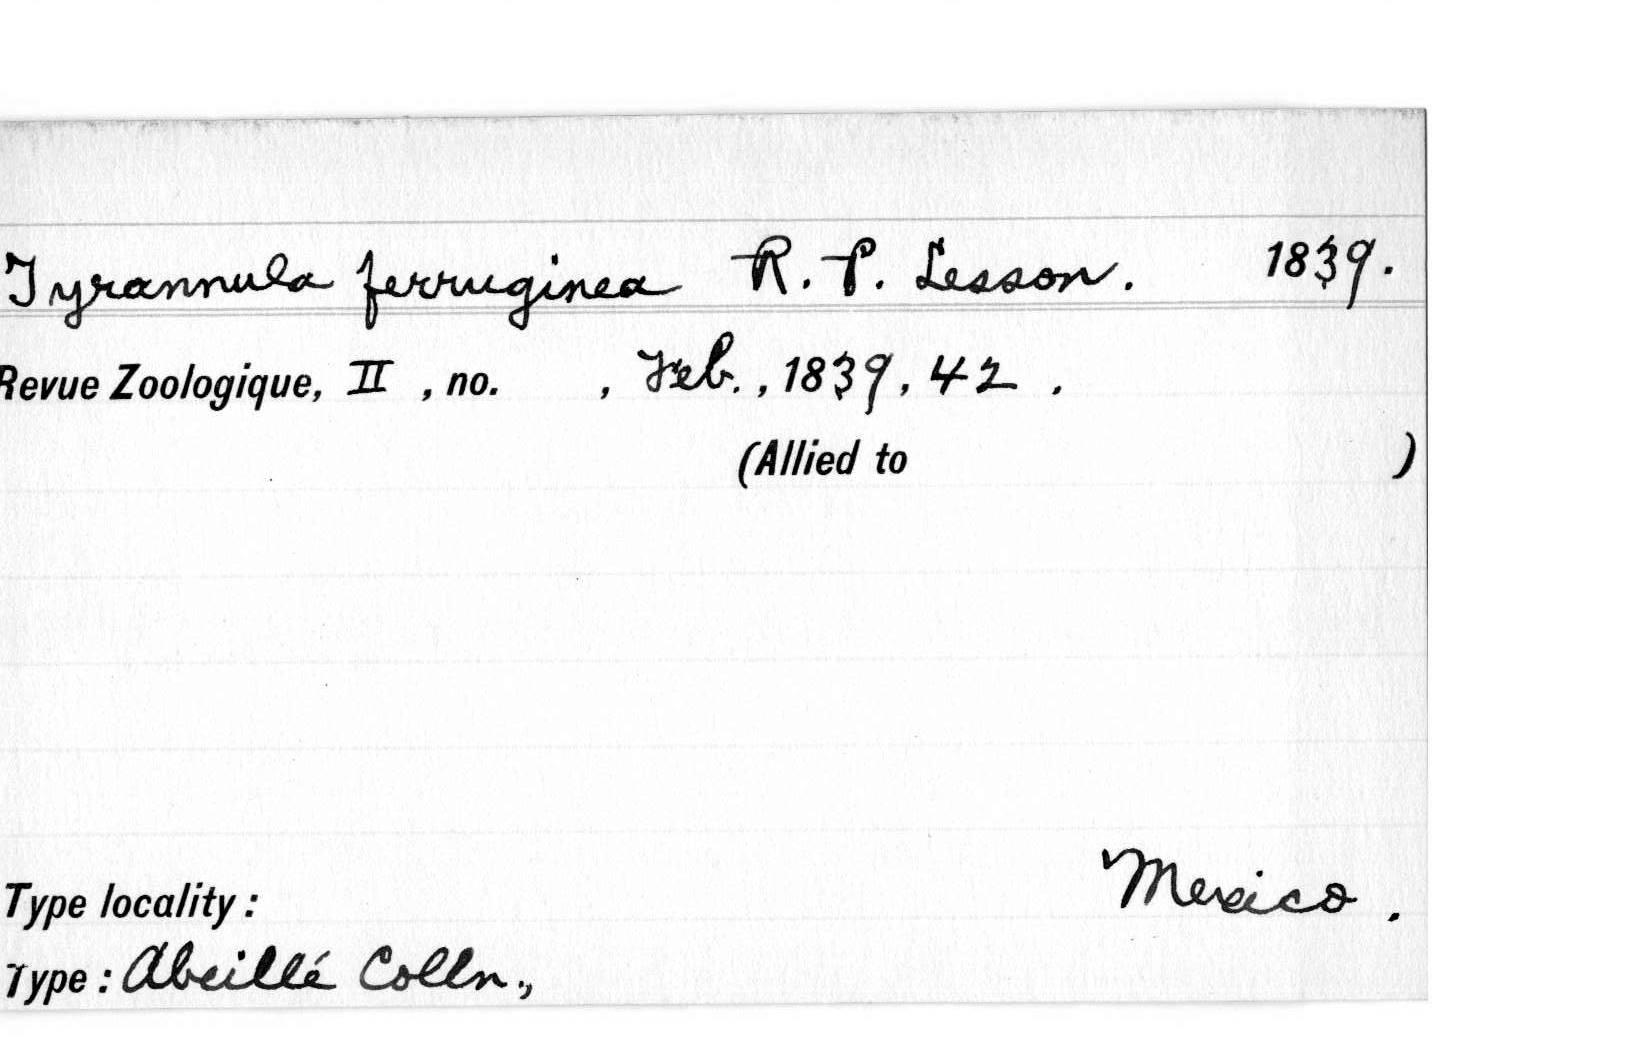 Tyrannula ferruginea R. P. Lesson. 1839.
Revue Zoologique, II , no. , Feb. , 1839, 42 .
(Allied to )
Type locality : Mexico .
Type : Abeillé Colln.,